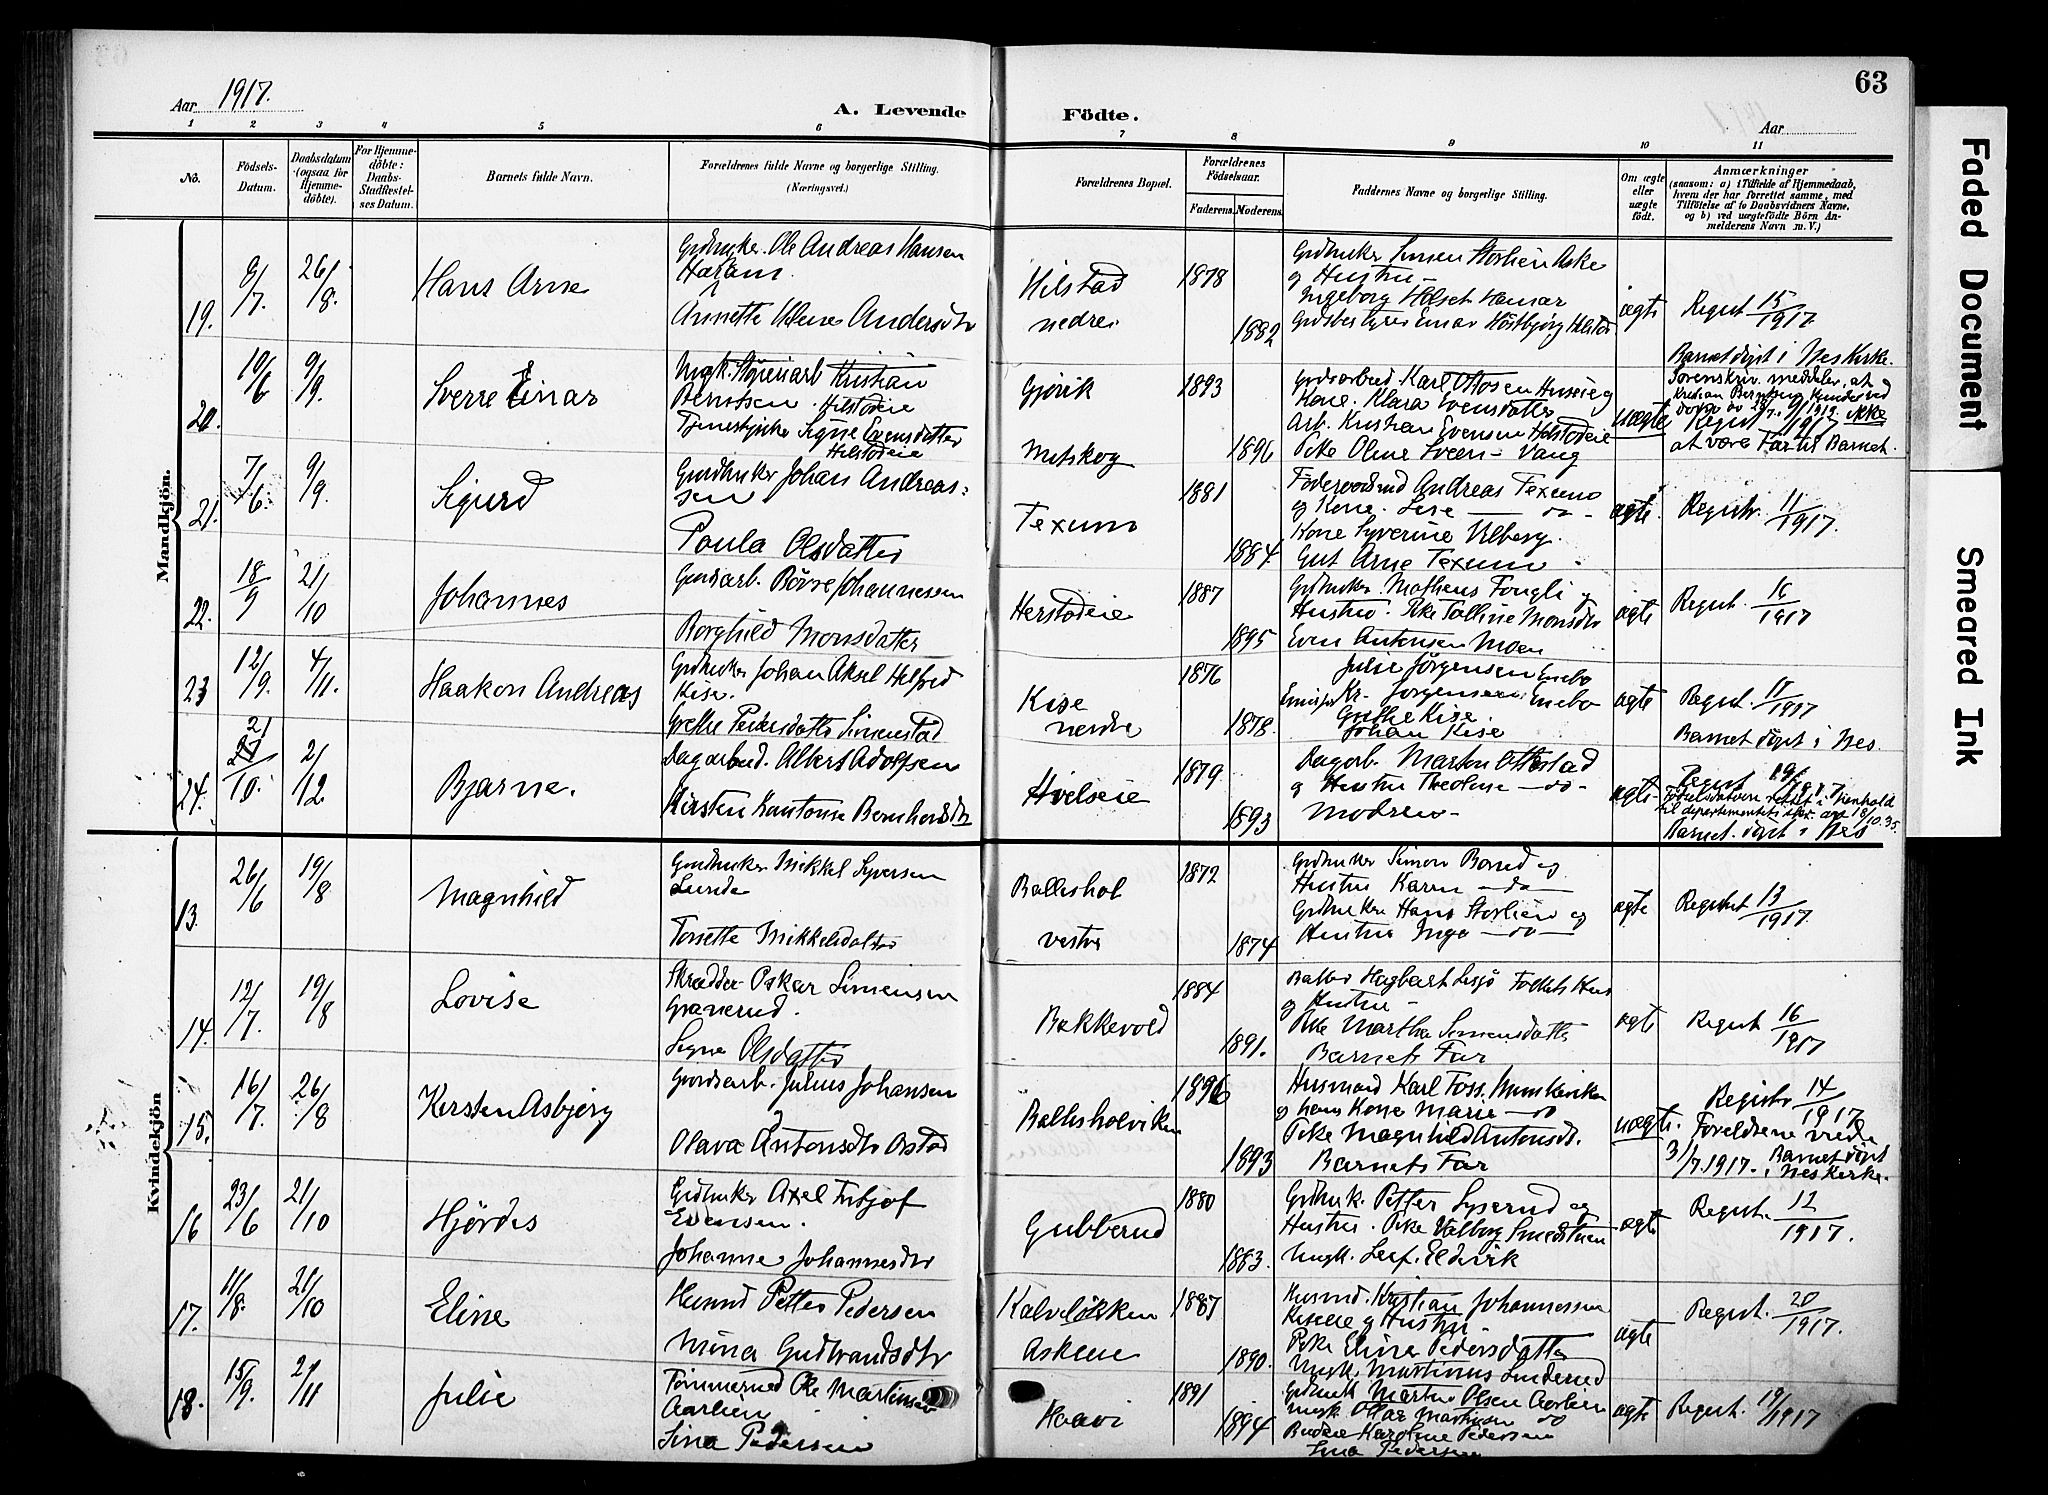 63
Aar 1917.
A. Levende
Födte.
Aar
1 2 3 4 5 6 7 8 9 10 11
No.
Födsels-
Datum.
Daabsdatum
(ogsaa for
Hjemme-
döbte).
For Hjemme-
döbte:
Daabs-
Stadfæstel-
ses Datum.
Barnets fulde Navn.
Forældrenes fulde Navne og borgerlige Stilling.
(Næringsvei.)
Forældrenes Bopæl.
Forældrenes
Födselsaar.
Faderens. Moderens.
Faddernes Navne og borgerlige Stilling.
Om ægte
eller
uægte
födt.
Anmærkninger
(saasom: a) i Tilfælde af Hjemmedaab,
hvem der har forrettet samme, med
Tilföielse af to Daabsvidners Navne,
og b) ved uægtefödte Börn An-
melderens Navn m. V.)
Mandkjön.
19. 9/7. 26/8. Hans Arne
Grdbruker. Ole Andreas Hansen
Annette Helene Andersdtr
Hilstad
nedre
1878
1882
og Hustru
Ingeborg Helset Hamar
ægte
Regist 15/1917.
20. 10/6 9/9. Sverre Einar
Ungk. Kristian
Berntsen. Hilstadeie
Tjenestepike Signe Evensdatter
Hilstadeie
Gjövik
Mutskog
1893
1896
Gardsarbeid. Karl Ottosen
Kone. Klara Evensdatter
Arb. Kristian Evensen Hilstadeie
Pike Oline Sveen - Vang
uægte
Barnet döpt i Nes Kirke.
Sorenskriv. meddeler, at
Regist 9/1917 ikke
at være Far til Barnet.
21. 7/6. 9/9. Sigurd
Gardbruker Johan Andreas-
sen
Paula Olsdatter
Texum
1881
1884.
Föderaadsmd Andreas Texum
og Kone. Lise — do -
Kone Syverine Ulberg.
Gut Arne Texum
ægte.
Registr. 11/1917.
22. 18/9 21/10 Johannes
Gardsarb. Börre Johannessen
Borghild Monsdatter
Herstadeie
1887
1895
Grdbruker. Matheus Fougli og
Hustru. Pike Talline Monsdtr
Even Antonsen Moen
ægte
Regist. 16/1917
23 12/9. 4/11. Haakon Andreas
Grdbruker Johan Aksel Helfred
Kise.
Grethe Pedersdatter Simenstad
Kise
nedre
1876
1878.
Julie Jörgensen Enebo
Kr. Jörgensen Enebo
Grethe Kise.
Johan Kise
ægte
Regist. 17/1917
Barnet döpt i Nes.
24. 21/10. 2/12. Bjarne.
Dagarbeid. Albert Adolfsen
Kirsten Kantonse Bernhardsdtr
Hvelseie
1879
1893
Dagarb. Morten Ottestad
og Hustru Theoline — do -
Modren -
ægte
Regist 19/1917
Födselsdatoen rettet i henhold
til departementets skr. av 18/10.35.
Barnet döpt i Nes
Kvindekjön
13. 26/6 19/8 Magnhild
Gardbruker Mikkel Syversen
Lunde
Torsette Mikkelsdatter
Balleshol
vestre
1872
1874
Grdbruker Simon Borud og
Hustru Karen — do —
Grdbruker Hans Storlien og
Hustru Inga — do —
ægte
Registret 13/1917.
14. 12/7. 19/8 Lovise
Skrædder Oskar Simensen
Granerud.
Signe Olsdatter
Bakkevold
1884
1891.
og Hustru -
Pike Martha Simensdatter
Barnets Far
ægte
Regist 16/1917
15. 16/7. 26/8 Kirsten Asbjörg
Gardsarb. Julius Johansen
Olava Antonsdtr Orstad
Ballesholviken
1896
1893
Husmand Karl Foss. Munkeviken
og hans Kone Marie — do
Pike Magnhild Antonsdt.
Barnets Far
uægte.
Registr 14/1917
Foreldrene viede
3/7.1917. Barnet döpt
i Nes Kirke.
16 23/6 21/10 Hjördis
Grdbruker Axel Fritjof
Evensen.
Johanne Johannesdtr
Gubberud
1880
1883.
Grdbruk. Petter Syverud og
Hustru. Pike Valborg Smedstuen
Ungk. Leif Eldevik
ægte
Regist. 12/1917.
17. 11/8. 21/10 Eline
Husmd Petter Pedersen
Mina Gudbrandsdtr
Kalvelökken
Askeeie
1887
1890.
Husmd. Kristian Johannessen
Kiseeie og Hustru.
Pike Eline Pedersdatter
Ungk. Martinus Linderud
ægte
Regist. 20/1917.
18. 15/9. 2/11 Julie
Tömmermd Ole Martinsen
Aarlien
Sina Pedersen
Haavi
1891
1894
Grdbruk Martin Olsen Aarlien
Ungk. Olaf Martinsen do
Budeie Karoline Pedersen
Sina Pedersen
ægte
Regist. 19/1917
Faded Document
Smeared Ink